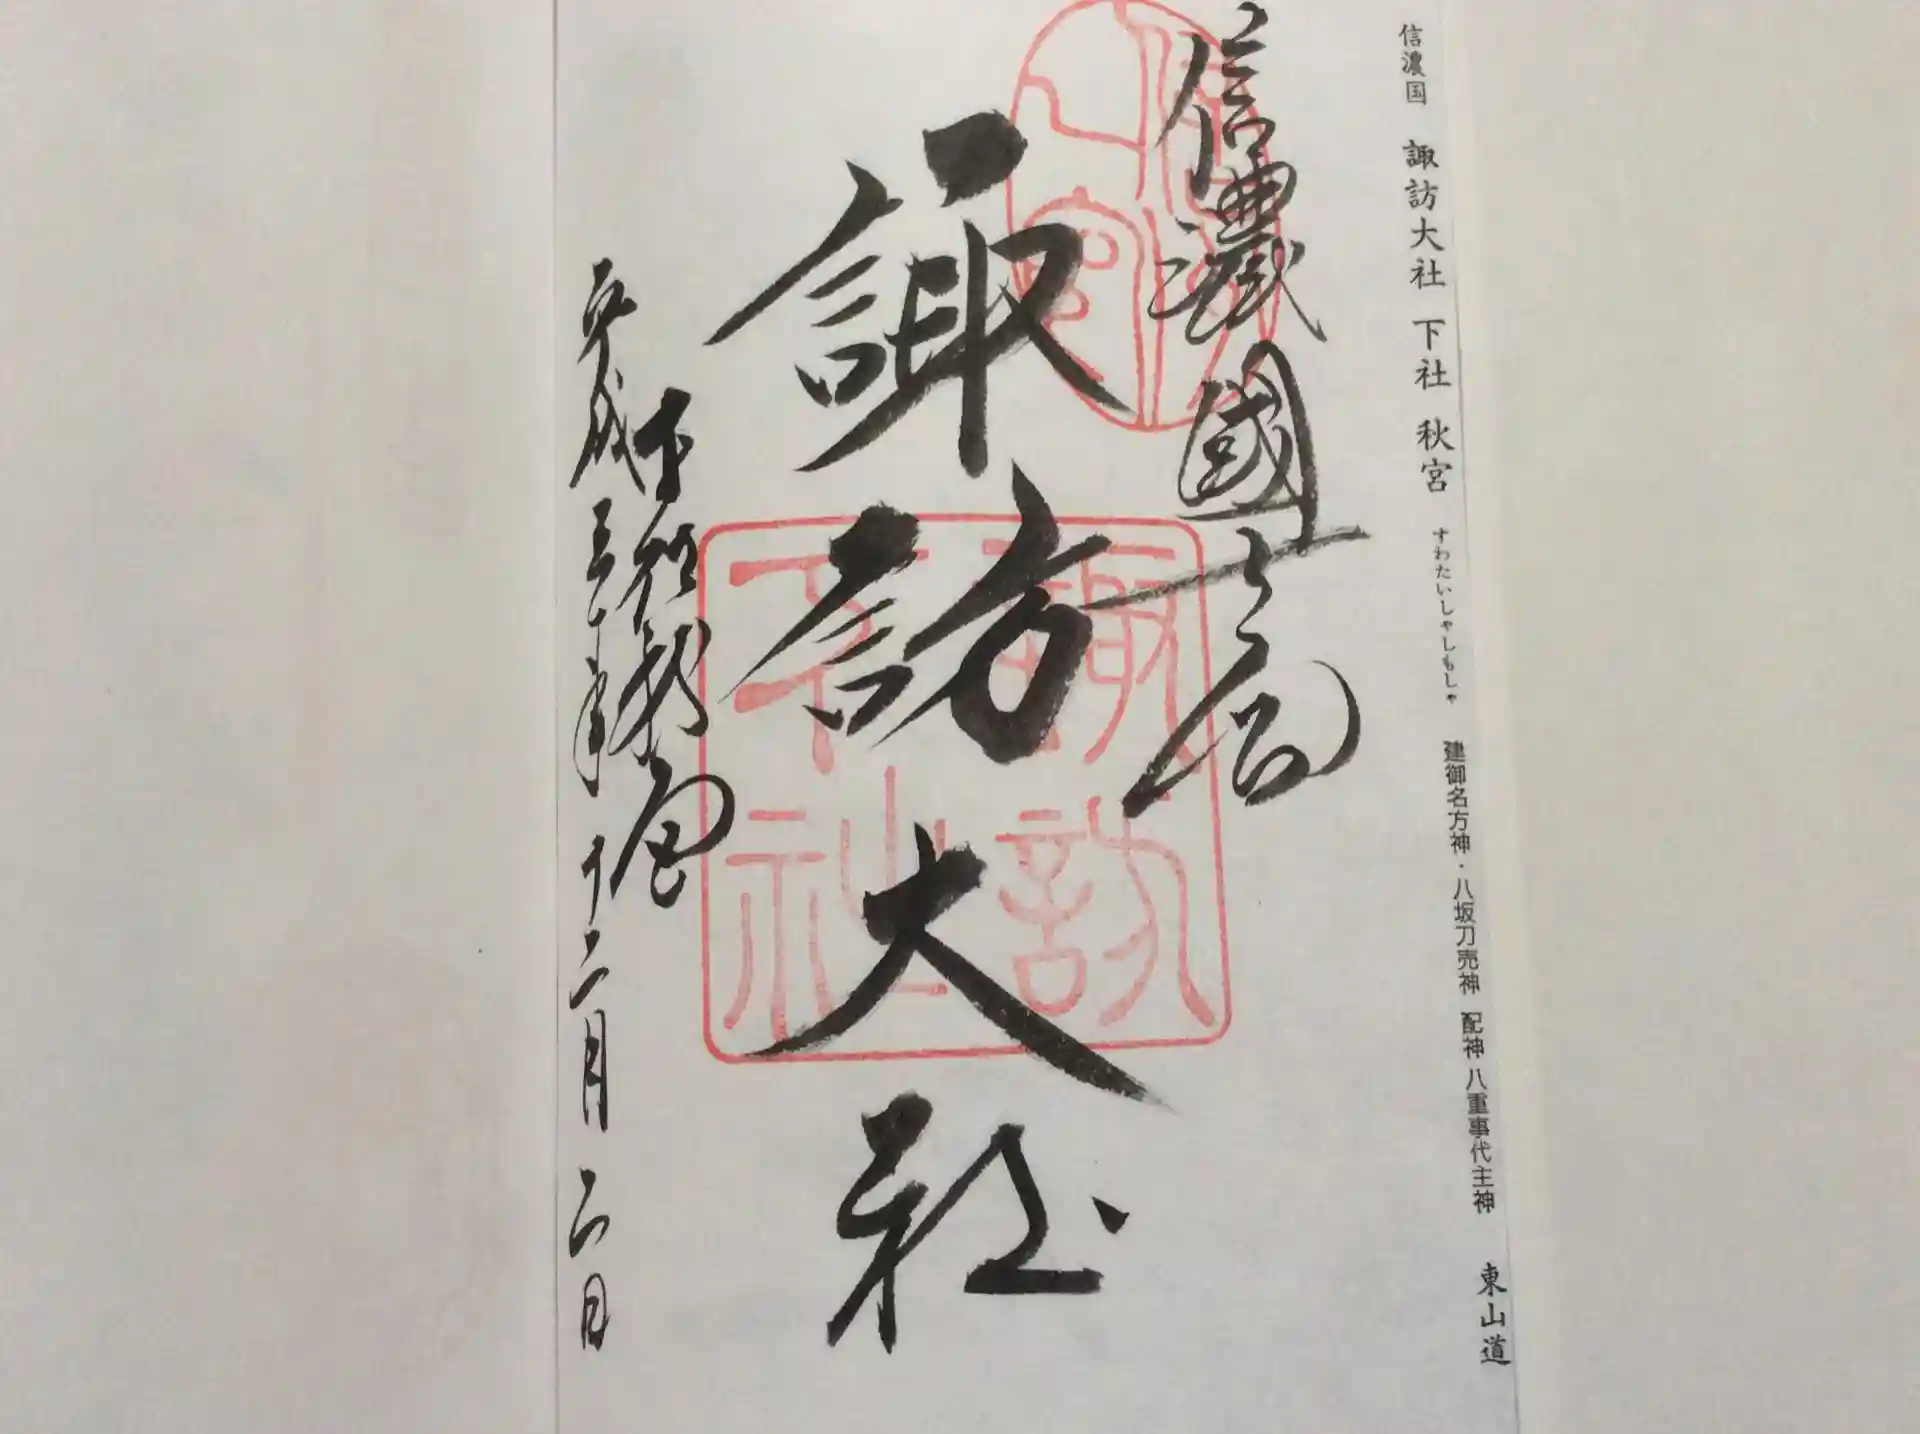 信濃国 諏訪大社 下社 秋宮 すわたいしゃしもしゃ 建御名方神・八坂刀売神 配神 八重事代主神 東山道
信濃國一之宮
諏訪大社
諏訪
下社
下社秋宮
平成三十年十二月二日